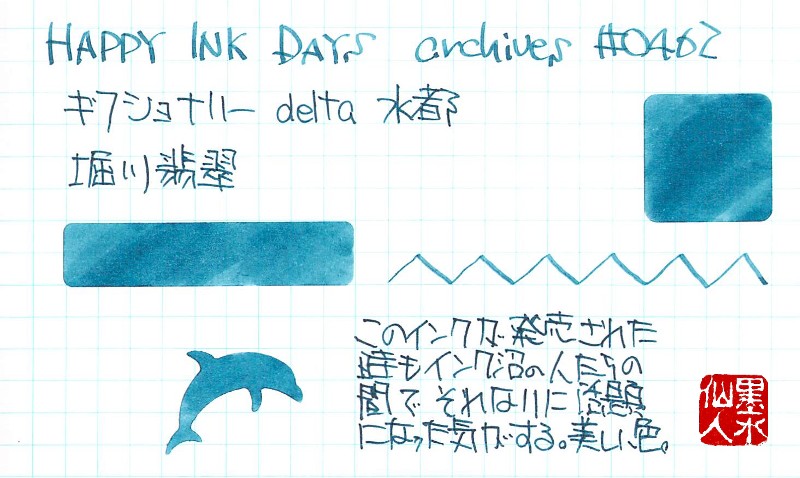 HAPPY INK DAYS archives #0462
ギフショナリー delta 水都
堀川翡翠
このインクが発売された
時もインク沼の人たちの
間でそれなりに話題
になった気がする。美しい色。
墨水
仙人